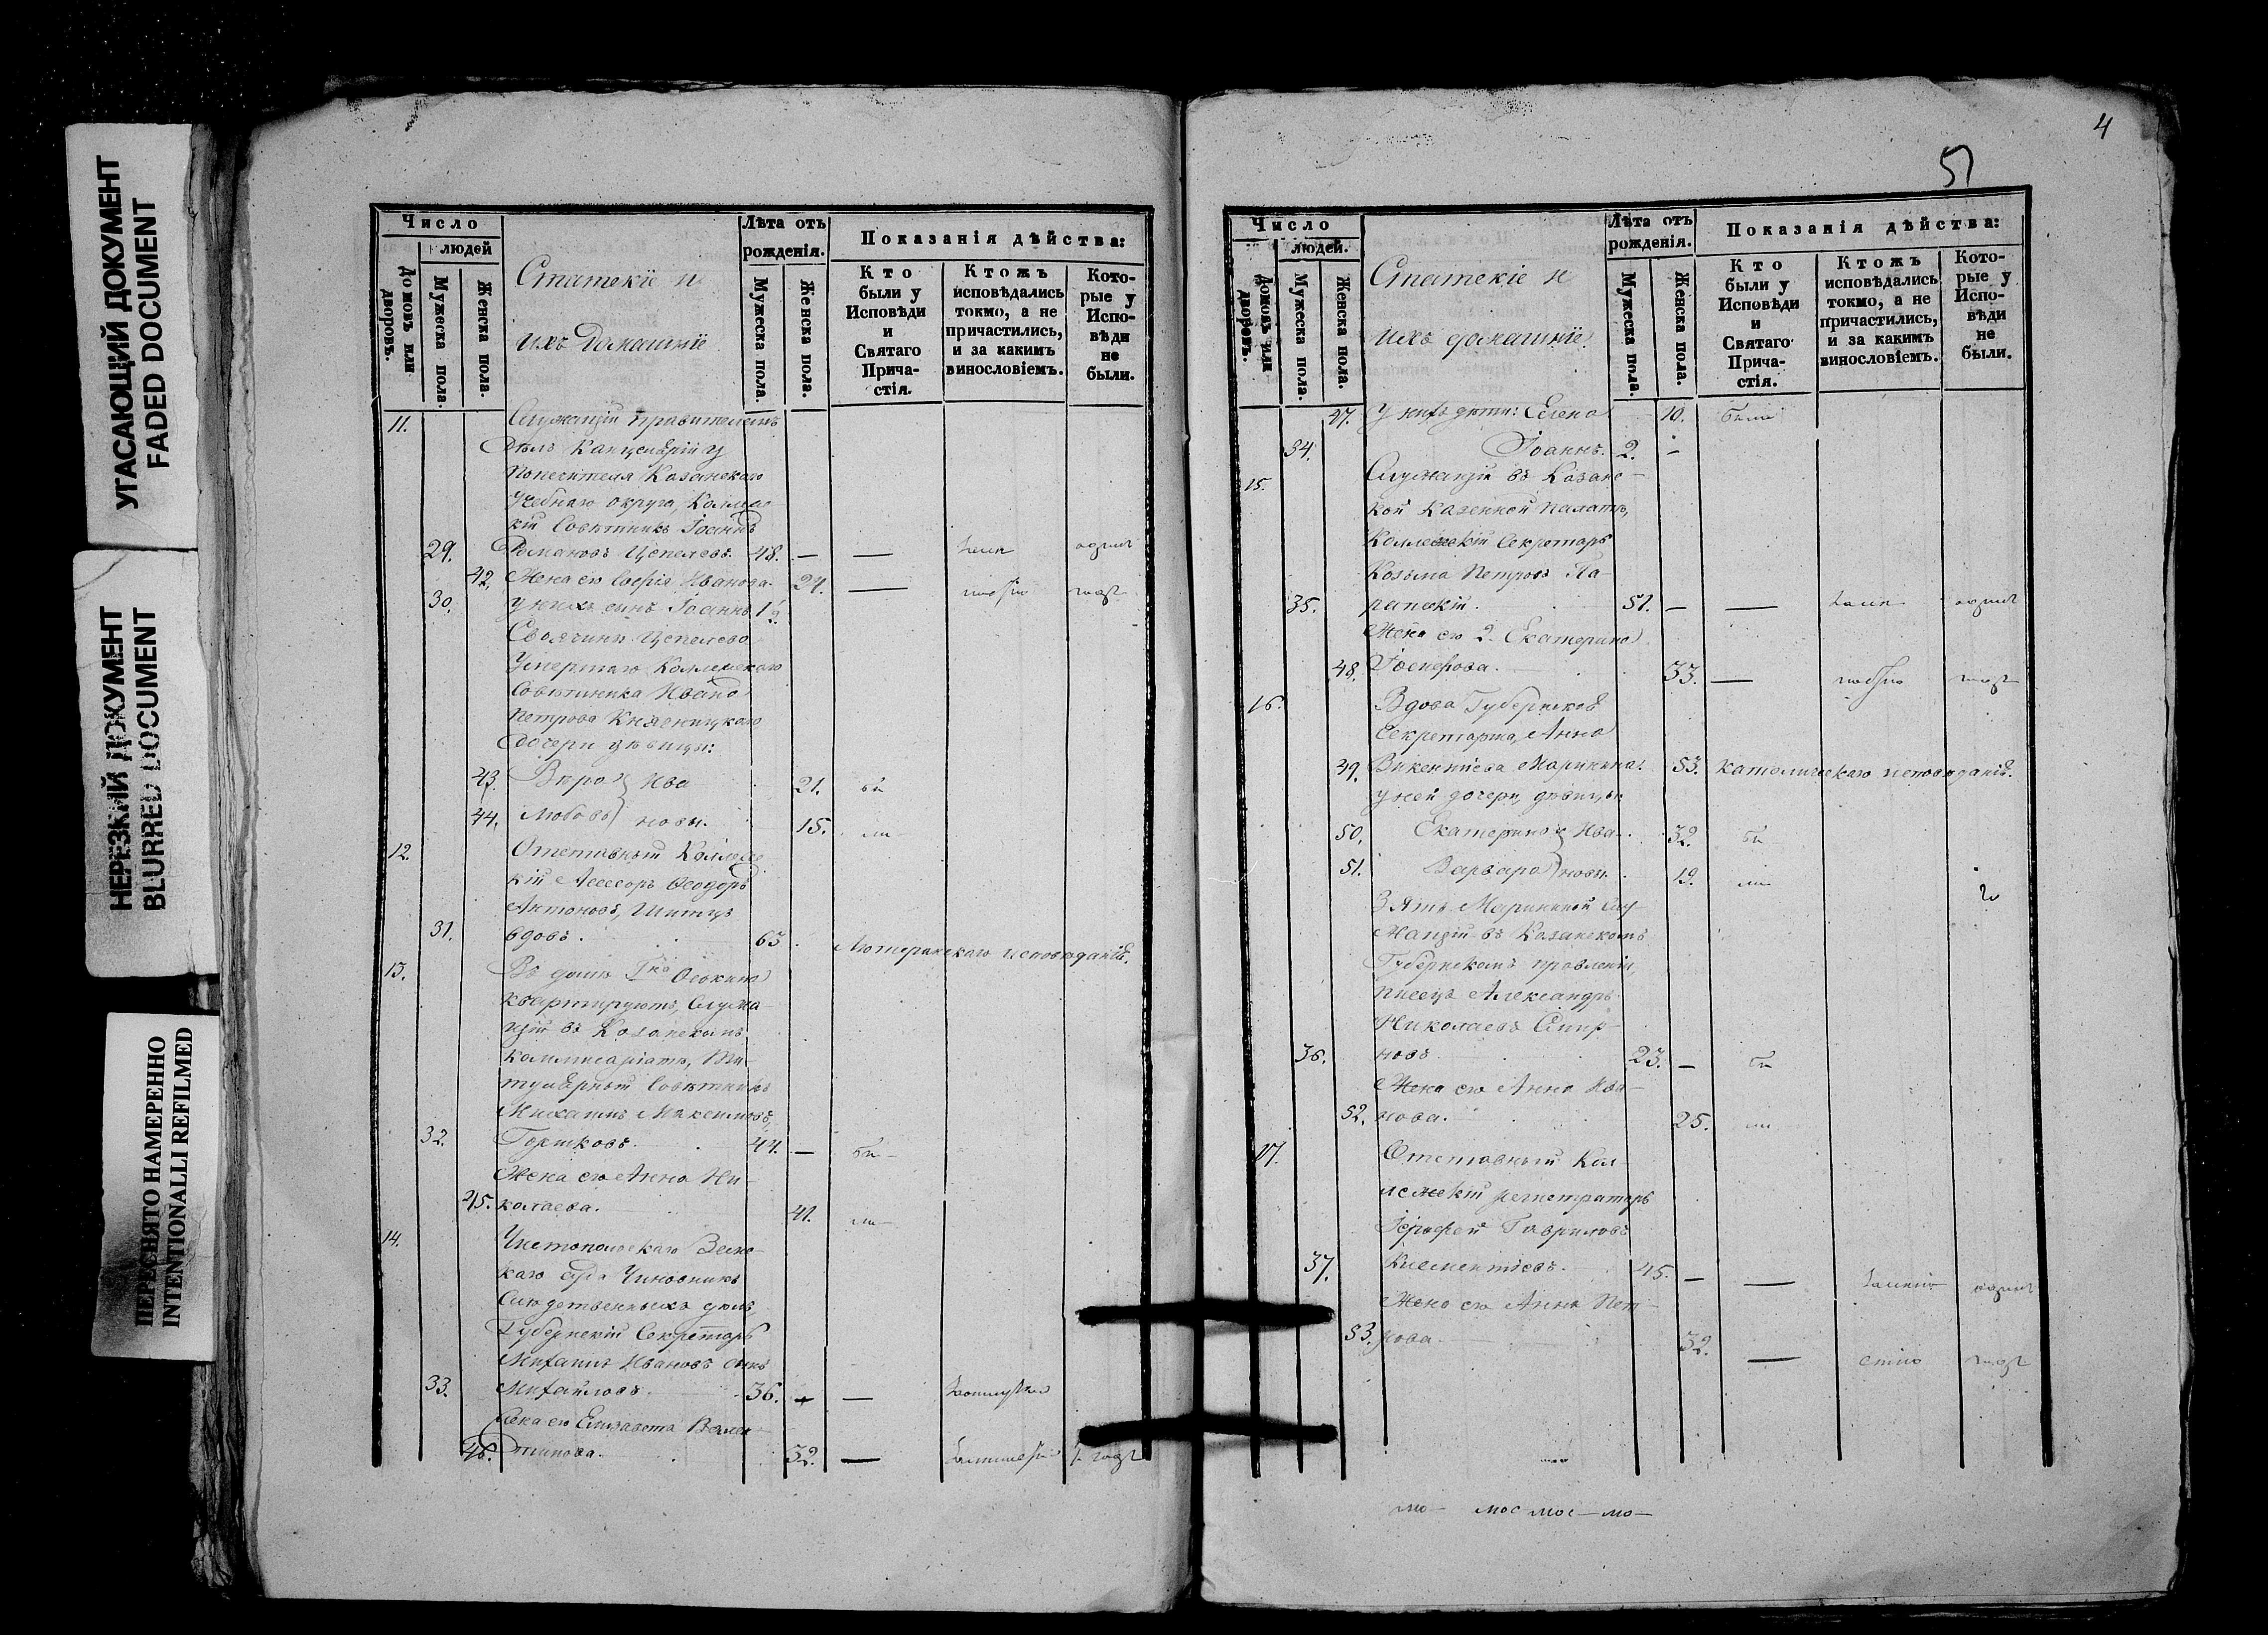 УГАСАЮЩИЙ ДОКУМЕНТ
FADED DOCUMENT
НЕРЕЗКИЙ ДОКУМЕНТ
BLURRED DOCUMENT
ПЕРЕСНЯТО НАМЕРЕННО
INTENTIONALLI REFILMED
Число
людей
Домовъ или дворовъ.
Мужеска пола.
Женска пола.
Статскіе и
ихъ домашніе
Лѣта отъ
рожденія.
Мужеска пола.
Женска пола.
Показанія дѣйства:
Кто
были у
Исповѣди
и
Святаго
Прича-
стія.
Ктожъ
исповѣдались
токмо, а не
причастились,
и за какимъ
винословіемъ.
Кото-
рые у
Испо-
вѣди
не
были.
11. Служащій правителемъ
дѣлъ Канцеляріи у
Попечителя Казанскаго
Учебнаго округа, Коллеж
кій Совѣтникъ Іоаннъ
29. Романовъ Цепелевъ. 48. — —
42. Жена его Софія Иванова. 24. —
30. у нихъ сынъ Іоаннъ 1
Своячины Цепелева
Умершаго Коллежскаго
Совѣтника Ивана
Петрова Княсницкаго
дочери дѣвицы:
43. Вѣра Ива 21.
44. Любовь новы. 15.
12. Отставный Коллеж
кій Асессоръ Ѳеодоръ
Антоновъ, Шитцъ
31. вдовъ. 63. Лютеранскаго исповѣданія.
13. Въ домѣ Оськина
квартируютъ, Служа-
щій въ Казанскомъ
Коммисаріатѣ, Ти-
тулярный Совѣтникъ
Михаилъ Максимовъ
32. Горшковъ. 44. —
Жена его Анна Ни-
45. колаева. 41.
14. Чистопольскаго Земс-
каго Чиновникъ
Слѣдственныхъ дѣлъ,
Губернскій Секретарь
Михаилъ Ивановъ сынъ
33. Михайловъ. 36. — —
Жена его Елизавета Вален-
46. тинова. 32. —
4
51
Число
людей.
Домовъ или дворовъ.
Мужеска пола.
Женска пола.
Статскіе и
ихъ домашніе
Лѣта отъ
рожденія.
Мужеска пола.
Женска пола.
Показанія дѣйства:
Кто
были у
Исповѣди
и
Святаго
Прича-
стія.
Ктожъ
исповѣдались
токмо, а не
причастились,
и за какимъ
винословіемъ.
Кото-
рые у
Испо-
вѣди
не
были.
47. У нихъ дѣти: Елена 10. была
34. Іоаннъ. 2. —
15. Служащій въ Казанс-
кой Казенной Палатѣ,
Коллежскій Секретарь
Козьма Петровъ
35. 51. — —
Жена его 2. Екатерина
48. 33. —
16. Вдова Губернскова
Секретарша, Анна
49. Викентіева Маринина. 53. Католическаго исповѣданія.
у ней дочери, дѣвицы
50. Екатерина Ива- 32.
51. Варвара новы. 19.
Зять Марининой Слу-
жащій въ Казанскомъ
Губернскомъ правленіи,
писецъ Александръ
Николаевъ Смир-
36. новъ. 23. —
Жена его Анна Ива-
52. нова. 25.
17. Отставный Кол-
лежскій регистраторъ
Іерофей Гавриловъ
37. Клементіевъ. 45. — —
Жена его Анна Пет-
53. рова. 32. —
мо— мос мос— мо—